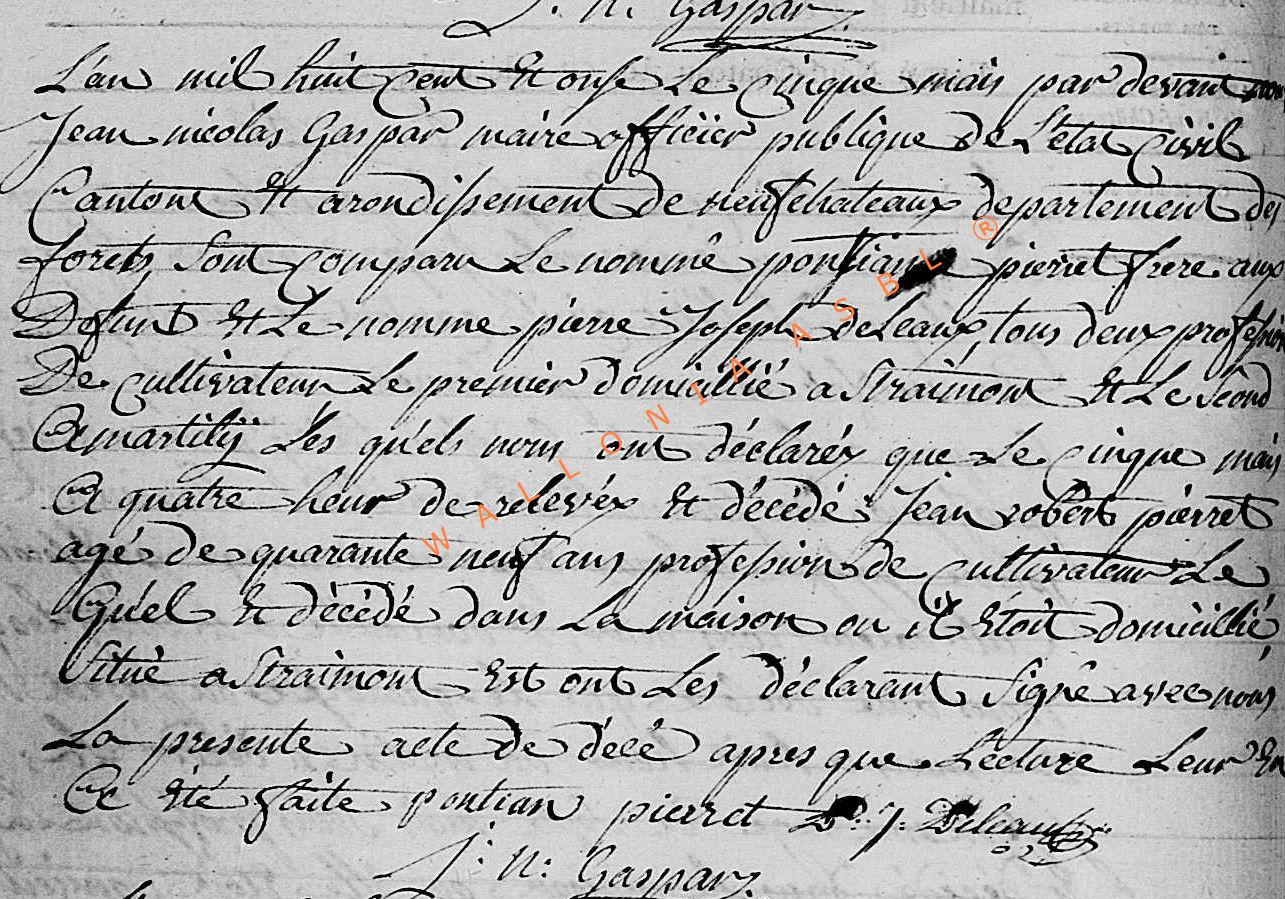 J. N. Gaspar
L'an mil huit cent Et onse Le cinque mais par devant nou
Jean nicolas Gaspar maire officier publique de L'état Civil
Canton Et arondissement de neufchateaux departement des
forets Sont comparu Le nommé pontian pierret frere aux
Defunt Et Le nomme pierre Joseph deLeaux, tous deux profession
De cultivateur Le premier domicillié a Straimont Et Le Second
a martilÿ Les quels nous ont déclaréz que Le cinque mais
a quatre heur de relevéx Et décédé Jean robert pierret
agé de quarante neuf ans profession de cultivateur Le
Quel Et décédé dans La maison ou il Etoit domicillié
Situé a Straimont Est ont Les déclarant Signé avec nous
La presente acte de décé apres que Lecture Leur En
a Eté faite pontian pierret P. J. Deleaux
J. N. Gaspar
WALLONIA ASBL ®